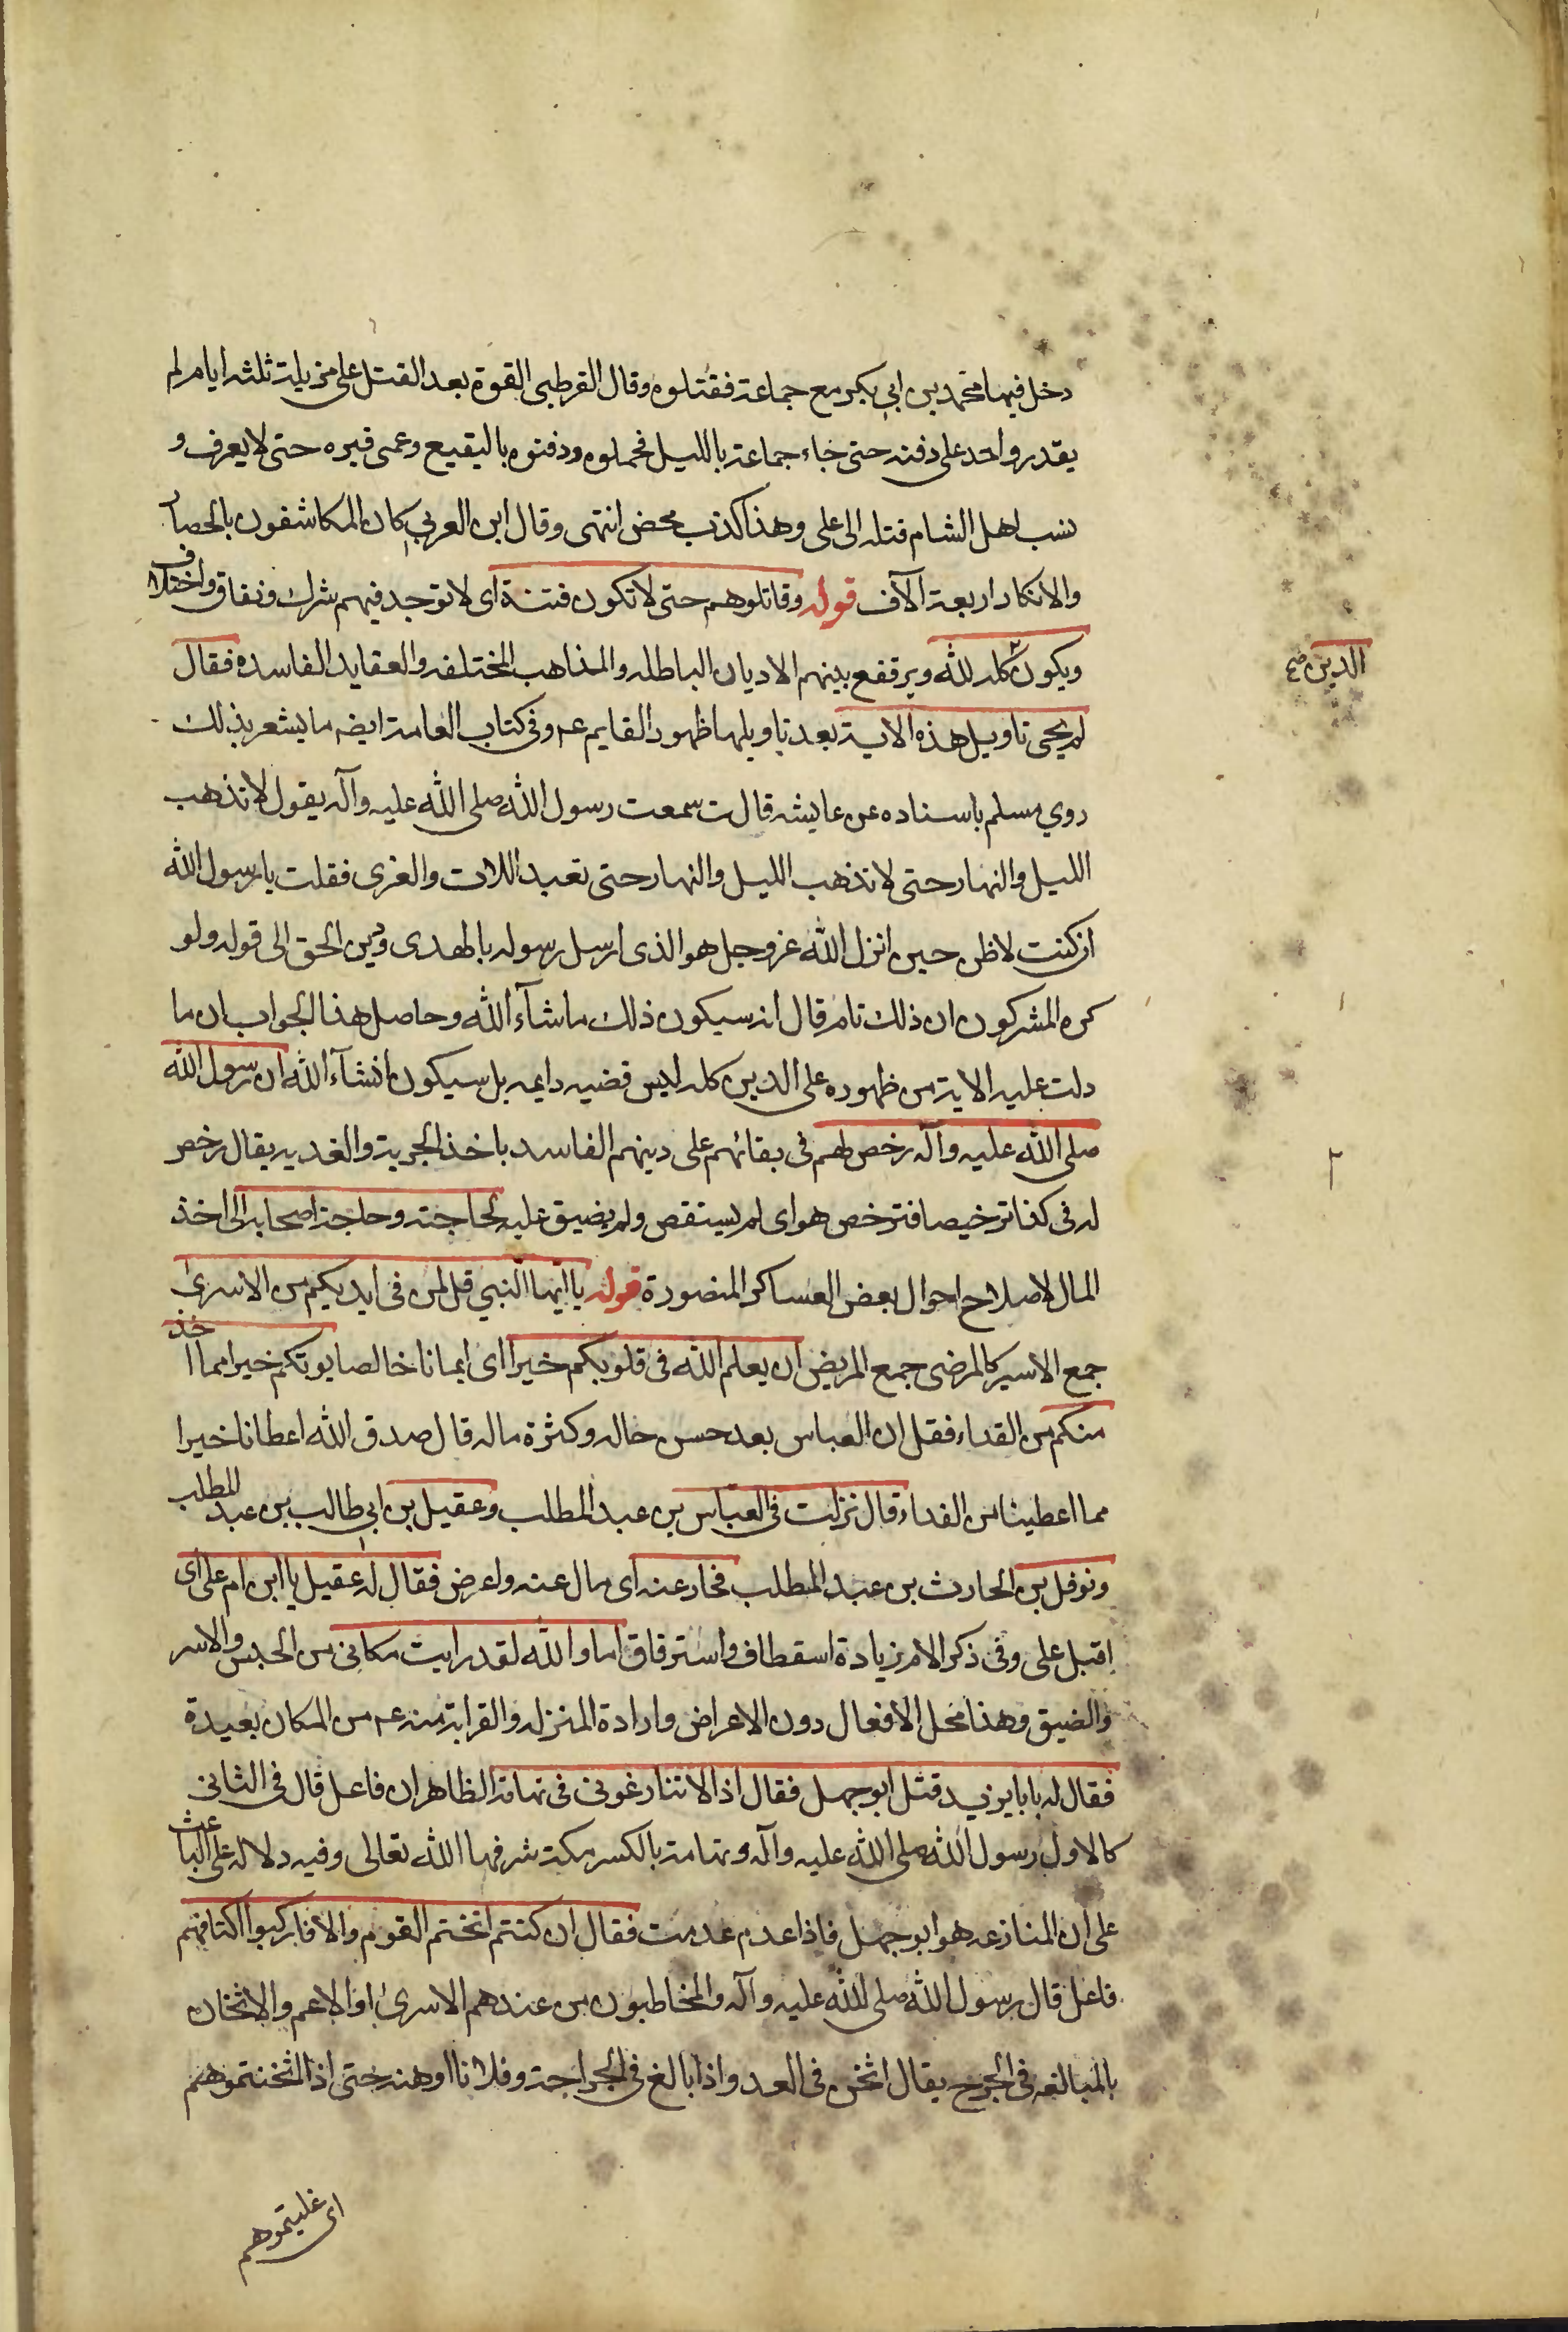 دخل فيها محمد بن ابي بكر مع جماعة فقتلوه وقال القرطبى القوة بعد القتل على مزبلة ثلثه ايام لم
يقدر واحد على دفنه حتى جاء جماعة بالليل فحملوه ودفنوه بالبقيع وعمى قبره حتى لا يعرف و
نسب اهل الشام قتله الى على وهذا كذب محض انتهى وقال ابن العربي كان المكاشفون بالحصار
والانكار اربعة الآف قوله وقاتلوهم حتى لا تكون فتنة اى لا توجد فيهم شرك ونفاق واختلاف
ويكون كله لله ويرتفع بينهم الاديان الباطله والمذاهب المختلفه والعقايد الفاسده فقال
الدين صح
لم يجى تاويل هذه الاية بعد تاويلها ظهور القايم عم وفى كتاب العامة ايضه ما يشعر بذلك
روي مسلم باسناده عن عايشه قالت سمعت رسول الله صلى الله عليه وآله يقول لا تذهب
الليل والنهار حتى لا تذهب الليل والنهار حتى تعبد اللات والعزى فقلت يا رسول الله
ان كنت لاظن حين انزل الله عز وجل هو الذى ارسل رسوله بالهدى ودين الحق الى قوله ولو
كره المشركون ان ذلك تام قال انه سيكون ذلك ما شآء الله وحاصل هذا الجواب ان ما
دلت عليه الاية من ظهوره على الدين كله ليس قضيه دايمه بل سيكون انشآء الله ان رسول الله
صلى الله عليه وآله رخص لهم فى بقائهم على دينهم الفاسد باخذ الجزية والفديه يقال رخص
له فى كذا ترخيصا فترخص هو اى لم يستقص ولم يضيق عليه لحاجته وحاجة اصحابه الى اخذ
المال لاصلاح احوال بعض العساكر المنصورة قوله يا ايها النبي قل لمن فى ايديكم من الاسرى
جمع الاسير كالمرضى جمع المريض ان يعلم الله فى قلوبكم خيرا اى ايمانا خالصا يوتكم خيرا مما اخذ
منكم من الفداء فقل ان العباس بعد حسن حاله وكثرة ماله قال صدق الله اعطانا خيرا
مما اعطينا من الفداء قال نزلت فى العباس بن عبد المطلب وعقيل بن ابي طالب بن عبد المطلب
ونوفل بن الحارث بن عبد المطلب فحاد عنه اى مال عنه واعرض فقال له عقيل يا ابن ام على اى
اقبل على وفى ذكر الام زيادة استعطاف واسترفاق اما والله لقد رايت مكانى من الحبس والاسر
والضيق وهذا محل الافعال دون الاعراض وارادة المنزله والقرابة منه عم من المكان بعيدة
فقال له يا با يزيد قتل ابو جهل فقال اذا لا تنازعونى فى تهامة الظاهر ان فاعل قال فى الثانى
كالاول رسول الله صلى الله عليه وآله وتهامة بالكسر مكة شرفها الله تعالى وفيه دلاله على الباعث
على ان المنازعه هو ابو جهل فاذا عدم عدمت فقال ان كنتم اثخنتم القوم والا فاركبوا اكتافهم
فاعل قال رسول الله صلى الله عليه وآله والمخاطبون من عندهم الاسرى او الاعم والاثخان
بالمبالغه فى الجرح يقال اثخن فى العدو اذا بالغ فى الجراحة وفلانا اوهنه حتى اذا اثخنتموهم
اى غلبتموهم